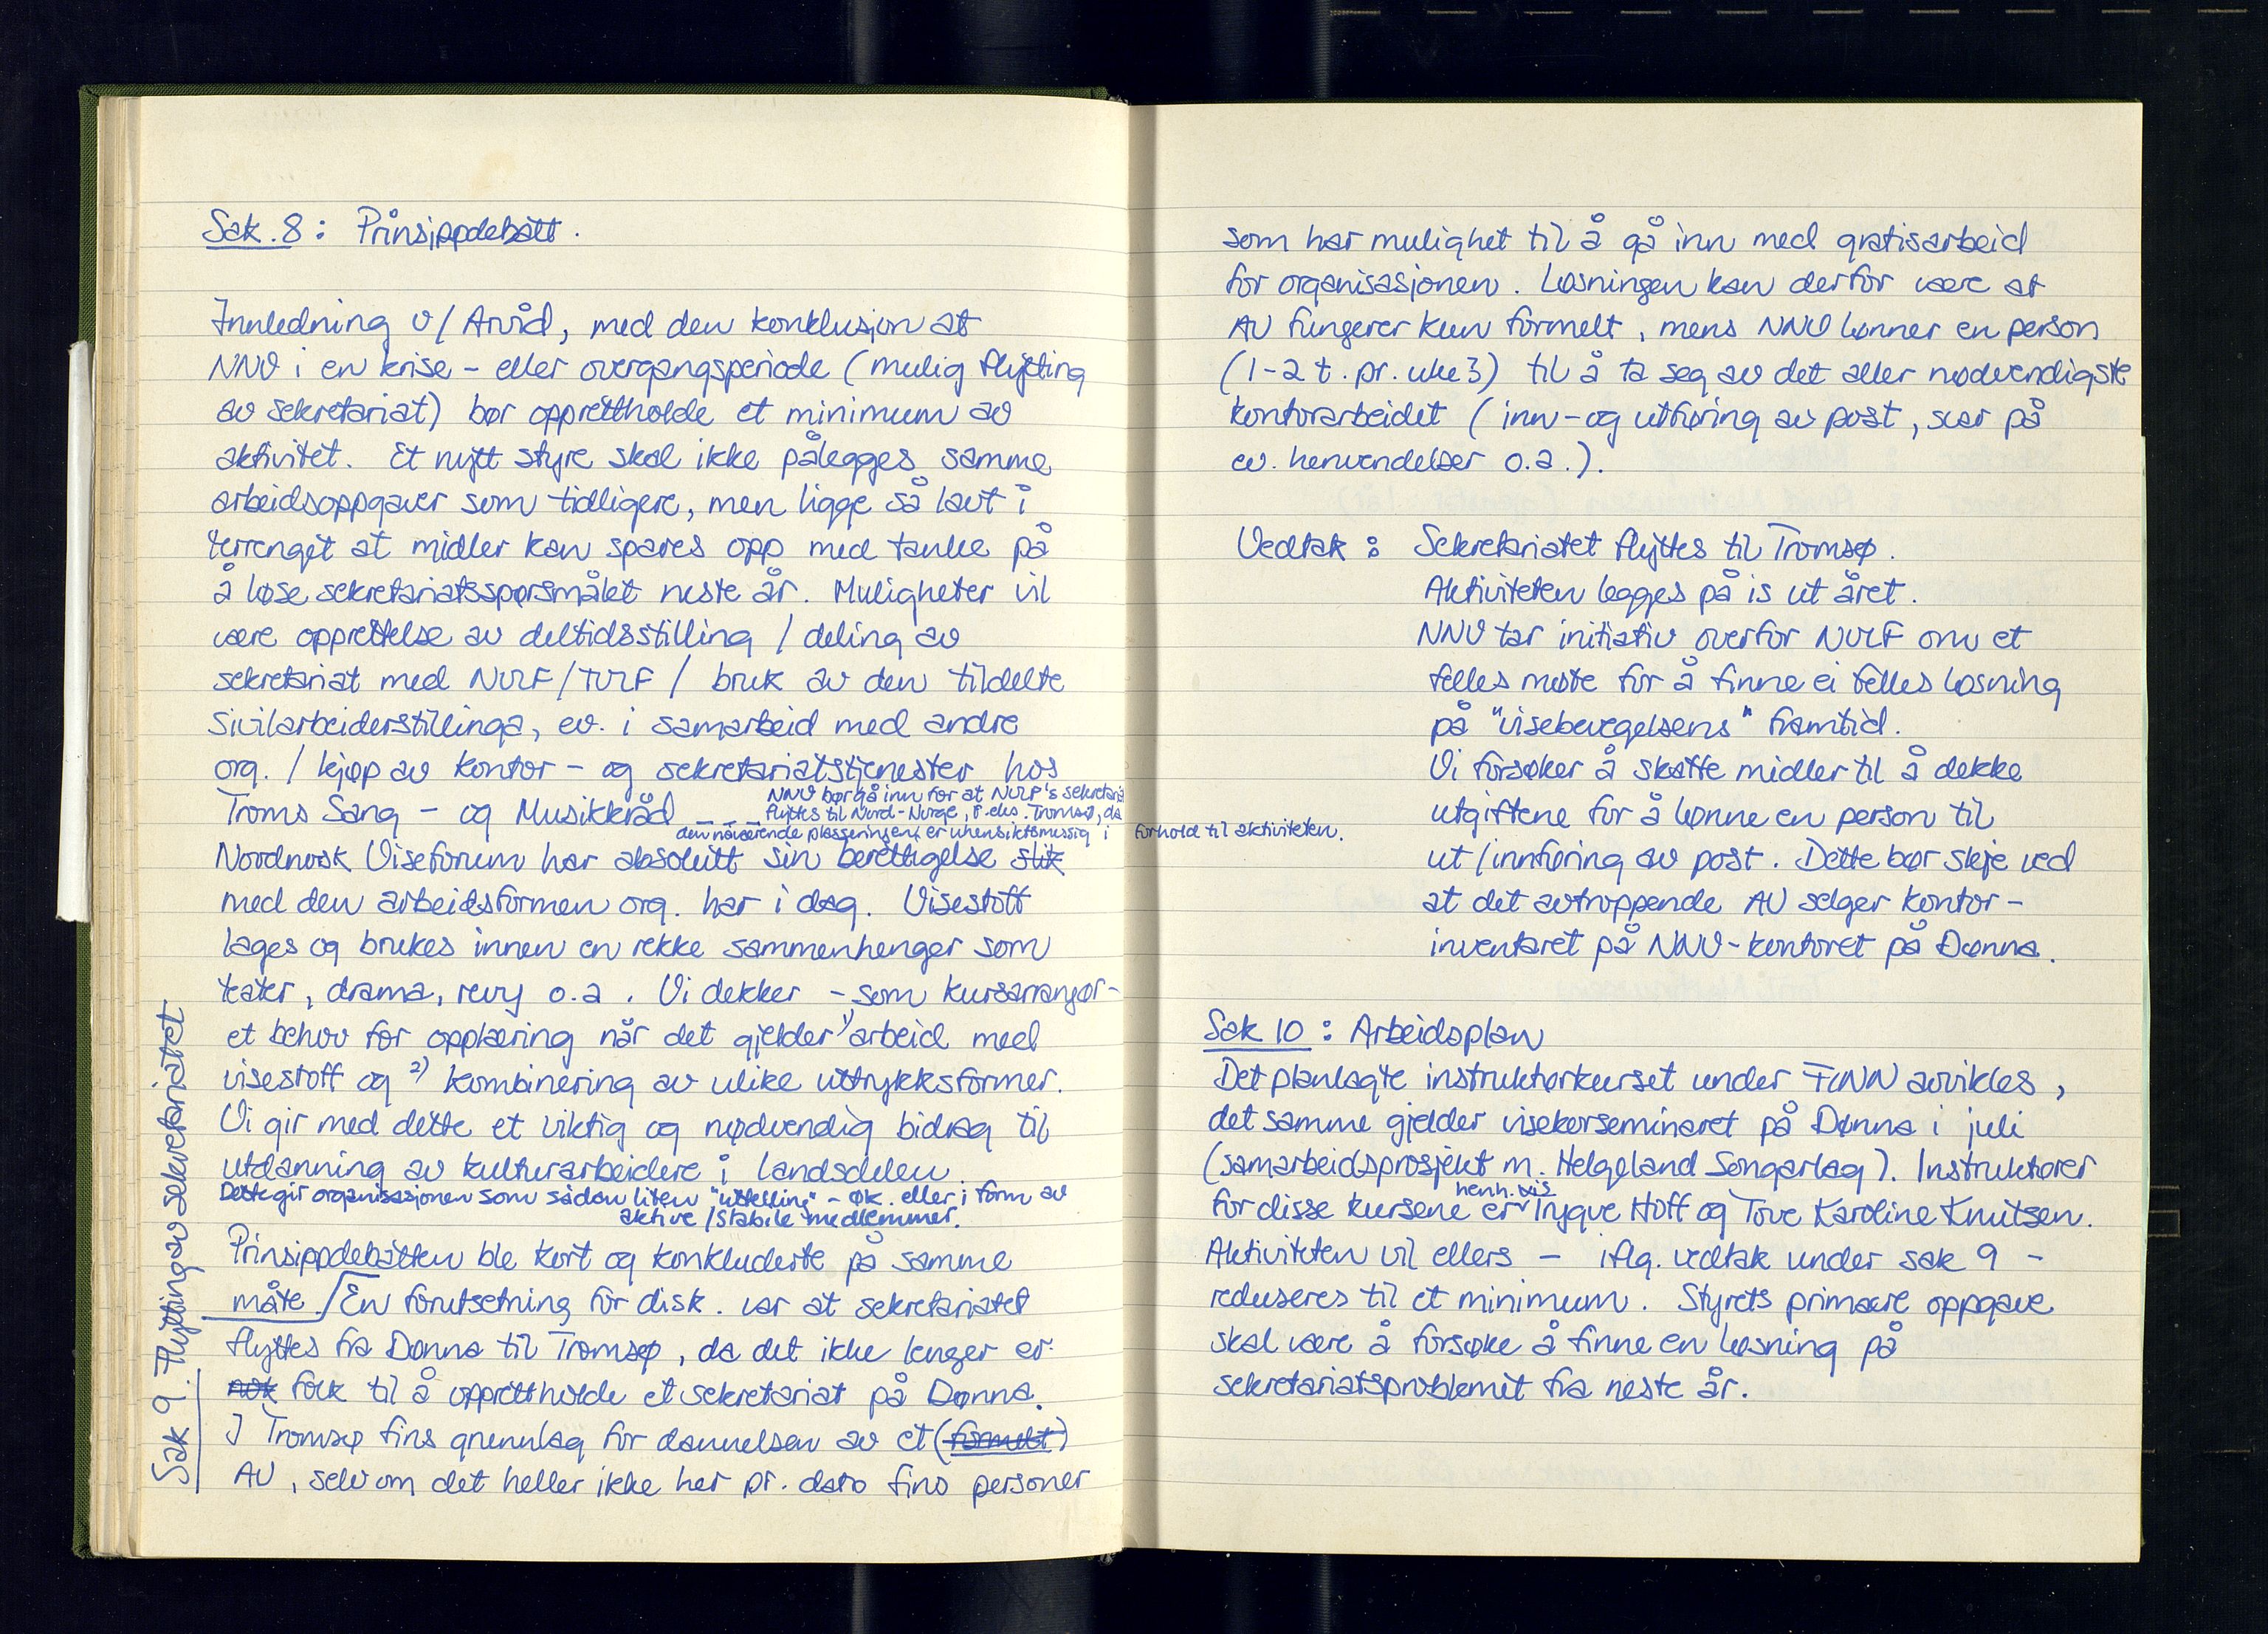 Sak 8: Prinsippdebatt.
Innledning v/Arvid, med den konklusjon at
NNV i en krise- eller overgangsperiode (mulig flytting
av sekretariat) bør opprettholde et minimum av
aktivitet. Et nytt styre skal ikke pålegges samme
arbeidsoppgaver som tidligere, men ligge så lavt i
terrenget at midler kan spares opp med tanke på
å løse sekretariatsspørsmålet neste år. Muligheter vil
være opprettelse av deltidsstilling / deling av
sekretariat med NVLF/TVLF / bruk av den tildelte
sivilarbeiderstillinga, ev. i samarbeid med andre
org. / kjøp av kontor- og sekretariatstjenester hos
Troms Sang- og Musikkråd _ _ _
NNV bør gå inn for at NVLF's sekretariat
flyttes til Nord-Norge, f.eks. Tromsø, da
den nåværende plasseringen er uhensiktsmessig i forhold til aktiviteten.
Nordnorsk Viseforum har absolutt sin berettigelse slik
med den arbeidsformen org. har i dag. Visestoff
lages og brukes innen en rekke sammenhenger som
teater, drama, revy o.a. Vi dekker - som kursarrangør -
et behov for opplæring når det gjelder 1) arbeid med
visestoff og 2) kombinering av ulike uttrykksformer.
Vi gir med dette et viktig og nødvendig bidrag til
utdanning av kulturarbeidere i landsdelen.
Dette gir organisasjonen som sådan liten "uttelling" - øk. eller i form av
aktive/stabile medlemmer.
Prinsippdebatten ble kort og konkluderte på samme
måte. En forutsetning for disk. var at sekretariatet
flyttes fra Dønna til Tromsø, da det ikke lenger er
nok folk til å opprettholde et sekretariat på Dønna.
I Tromsø fins grunnlag for dannelsen av et (formelt)
AU, selv om det heller ikke her pr. dato fins personer
Sak 9. Flytting av sekretariatet
som har mulighet til å gå inn med gratisarbeid
for organisasjonen. Løsningen kan derfor være at
AU fungerer kun formelt, mens NNV lønner en person
(1-2 t. pr. uke?) til å ta seg av det aller nødvendigste
kontorarbeidet (inn- og utføring av post, svar på
ev. henvendelser o.a.).
Vedtak: Sekretariatet flyttes til Tromsø.
Aktiviteten legges på is ut året.
NNV tar initiativ overfor NVLF om et
felles møte for å finne ei felles løsning
på "visebevegelsens" framtid.
Vi forsøker å skaffe midler til å dekke
utgiftene for å lønne en person til
ut/innføring av post. Dette bør skje ved
at det avtroppende AU selger kontor-
inventaret på NNV-kontoret på Dønna.
Sak 10: Arbeidsplan
Det planlagte instruktørkurset under FUNN avvikles,
det samme gjelder visekorseminaret på Dønna i juli
(samarbeidsprosjekt m. Helgeland Songarlag). Instruktører
for disse kursene er henh.vis Trygve Hoff og Tove Karoline Knutsen.
Aktiviteten vil ellers - iflg. vedtak under sak 9 -
reduseres til et minimum. Styrets primære oppgave
skal være å forsøke å finne en løsning på
sekretariatsproblemet fra neste år.